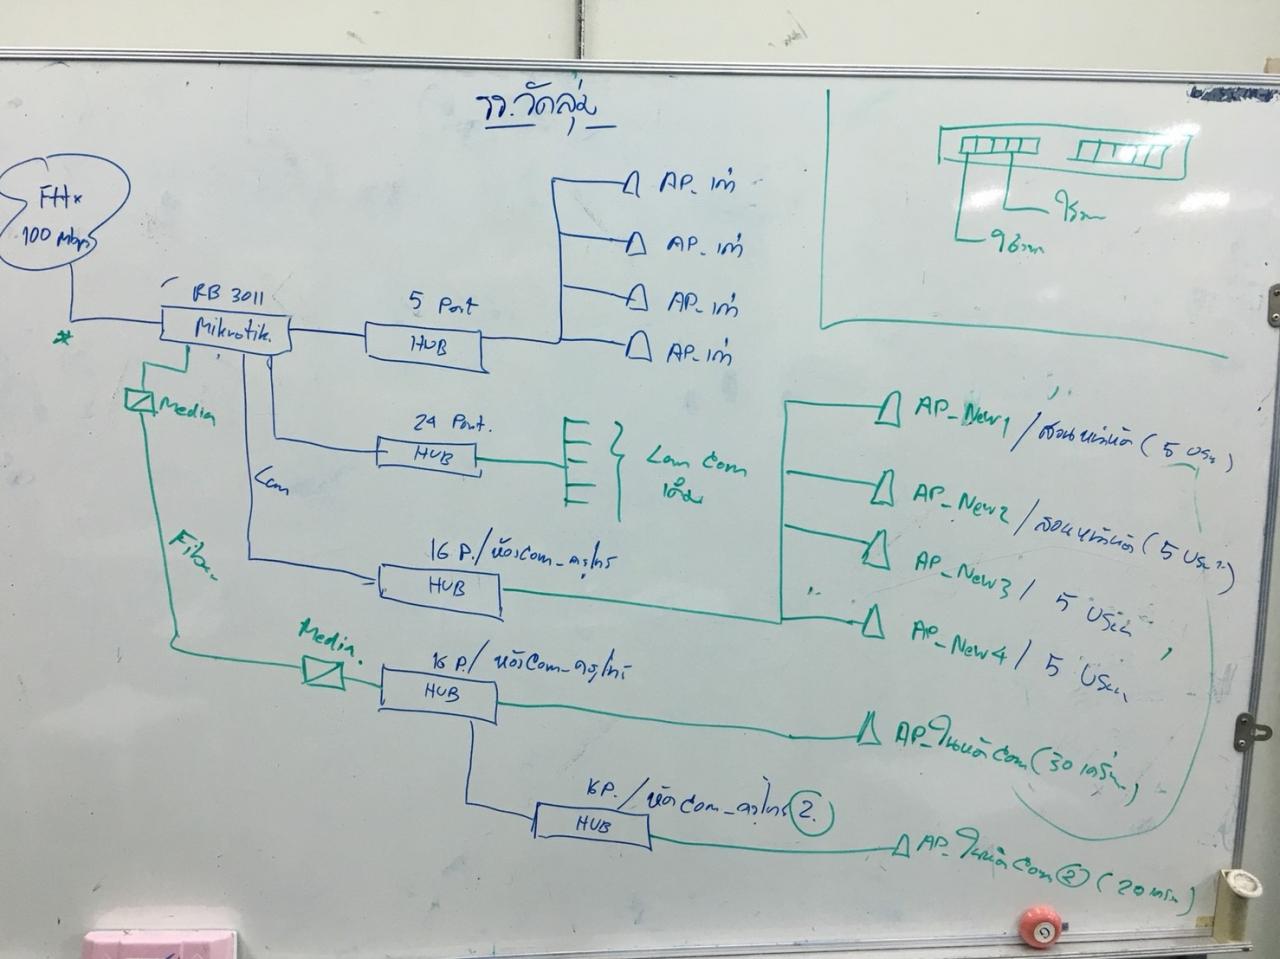 รร.วัดลุ่ม
FTTx
100 Mbps
RB 3011
Mikrotik.
5 Port
HUB
AP_เก่า
AP_เก่า
AP_เก่า
AP_เก่า
Media
24 Port.
HUB
Lan Com
เดิม
Lan
Fiber
16 P./ห้อง Com_ครูไก่
HUB
AP_New1 / (5 User)
AP_New2 / (5 User)
AP_New3 / 5 User
AP_New4 / 5 User
Media.
16 P./ห้อง Com_ครูไก่
HUB
AP_ในห้อง Com (30 เครื่อง)
16P./ห้อง Com_ครูไก่ 2.
HUB
AP_ในห้อง Com 2 (20 เครื่อง)